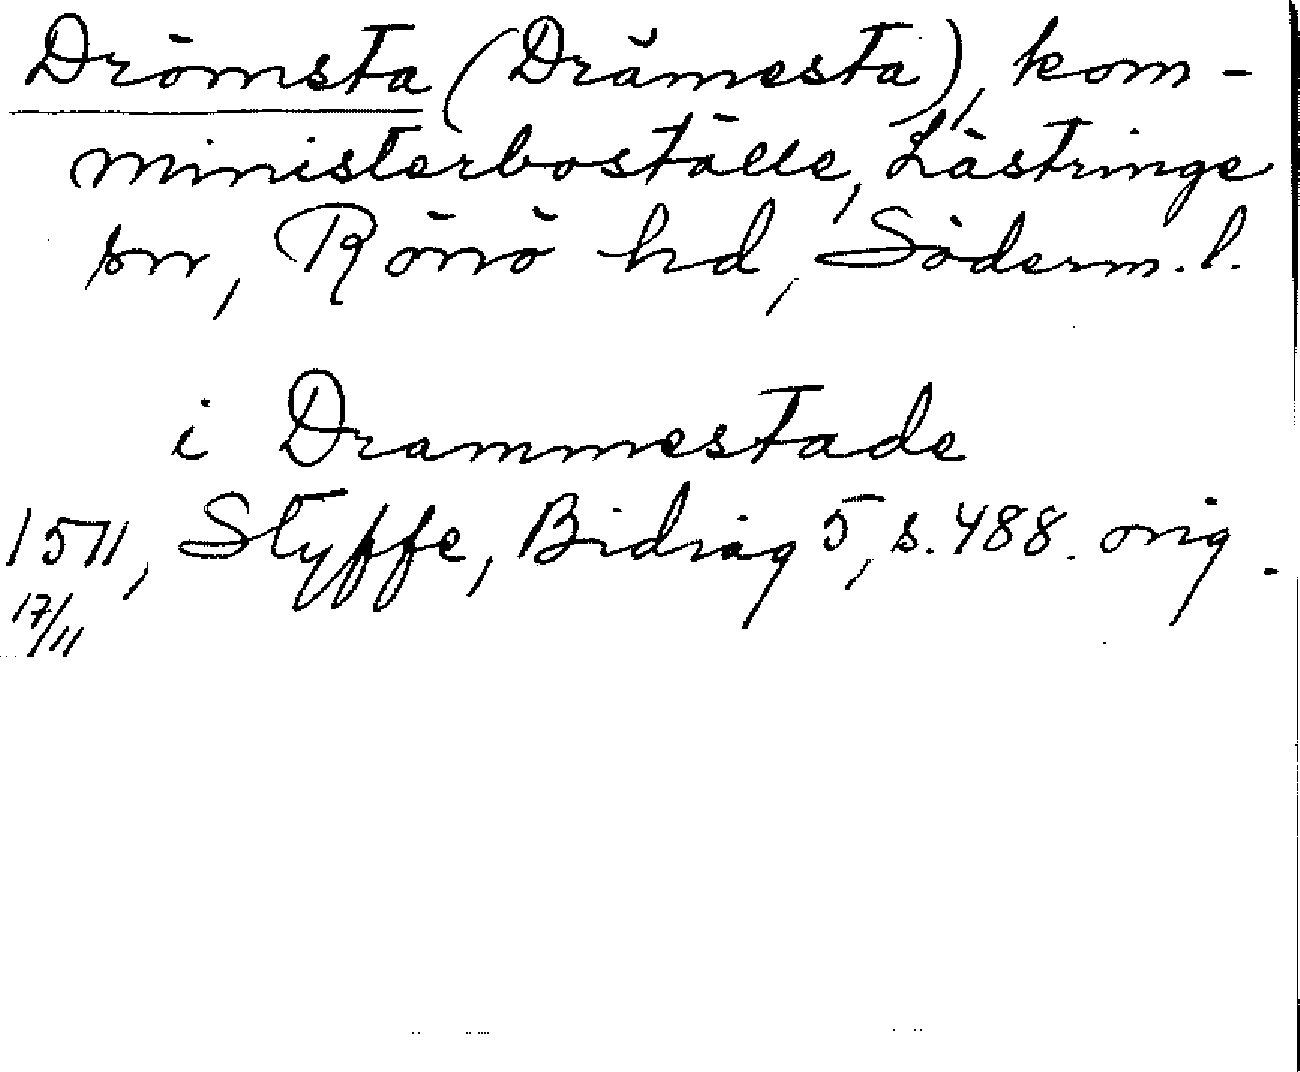 Drömsta (Drämesta), kom-
ministerboställe, Lästringe
sn, Rönö hd, Söderm. l.
i Drammestade
1511, Styffe, Bidrag 5, s. 488. orig.
17/11